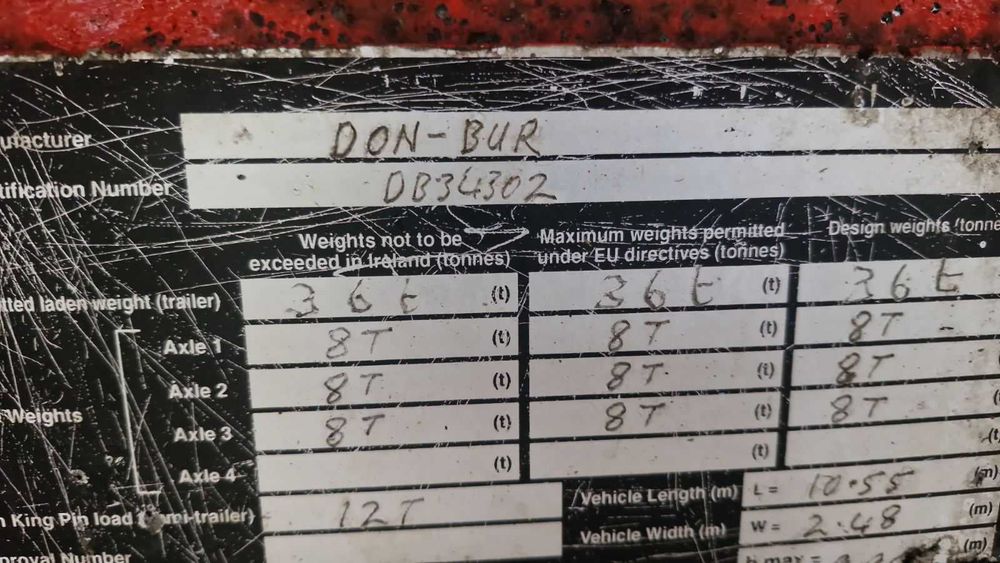 ufacturer DON-BUR
tification Number DB34302
Weights not to be exceeded in Ireland (tonnes) Maximum weights permitted under EU directives (tonnes) Design weights (tonne
tted laden weight (trailer) 36t (t) 36t (t) 36t
Axle 1 8T (t) 8T (t) 8T
Axle 2 8T (t) 8T (t) 8T
Weights
Axle 3 8T (t) 8T (t) 8T
Axle 4 (t) (t) (t
King Pin load (semi-trailer) 12T Vehicle Length (m) L = 10.55 (m)
Vehicle Width (m) W = 2.48 (m)
proval Number (m)